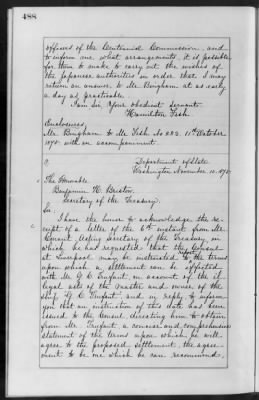 488
officers of the Centennial Commission, and
to inform me what arrangements it is possible
for them to make to carry out the wishes of
the Japanese authorities in order that I may
return an answer to Mr Bingham at as early
a day as practicable.
I am Sir Your obedient servant
Hamilton Fish.
Enclosures,
Mr. Bingham to Mr Fish No 283. 15th October
1875 with an accompaniment.
Department of State
Washington November 10. 1875
The Honorable
Benjamin H. Bristow,
Secretary of the Treasury.
Sir:
I have the honor to acknowledge the re-
ceipt of a letter of the 6th instant from Mr
Conant Acting Secretary of the Treasury, in
which he had requested that the Consul
at Liverpool may be instructed the terms
upon which a settlement can be effected
with Mr G C Trufant, on account of the il-
legal acts of the Master and owner of the
ship G C Trufant and in reply to inform
you that an instruction of this date has been
issued to the Consul directing him to obtain
from Mr. Trufant a concise and comprehensive
statement of the terms upon which he will
agree to the proposed settlement, the agree-
ment to be one which he can recommend.